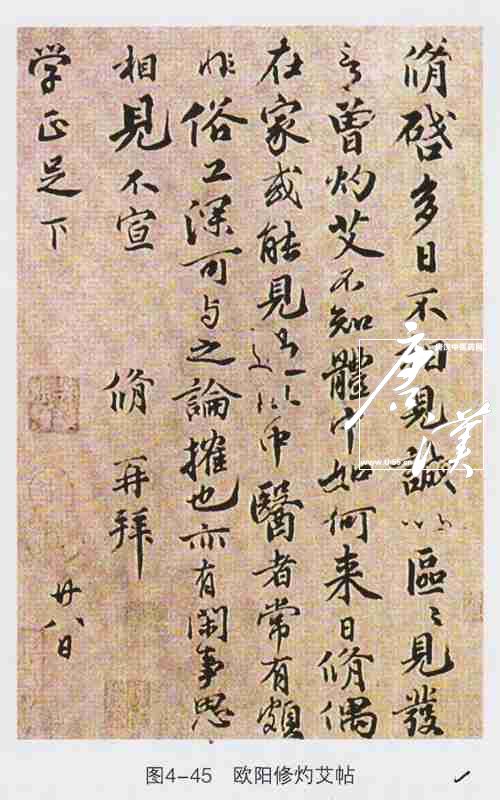 脩啓多日不相見誠以區〻見發
言曾灼艾不知體中如何来日脩偶
在家或能見過此中醫者常有頗
非俗工深可与之論搉也亦有閑事思
相見不宣 脩 再拜
学正足下 廿八日
廣漢
图4-45 欧阳修灼艾帖